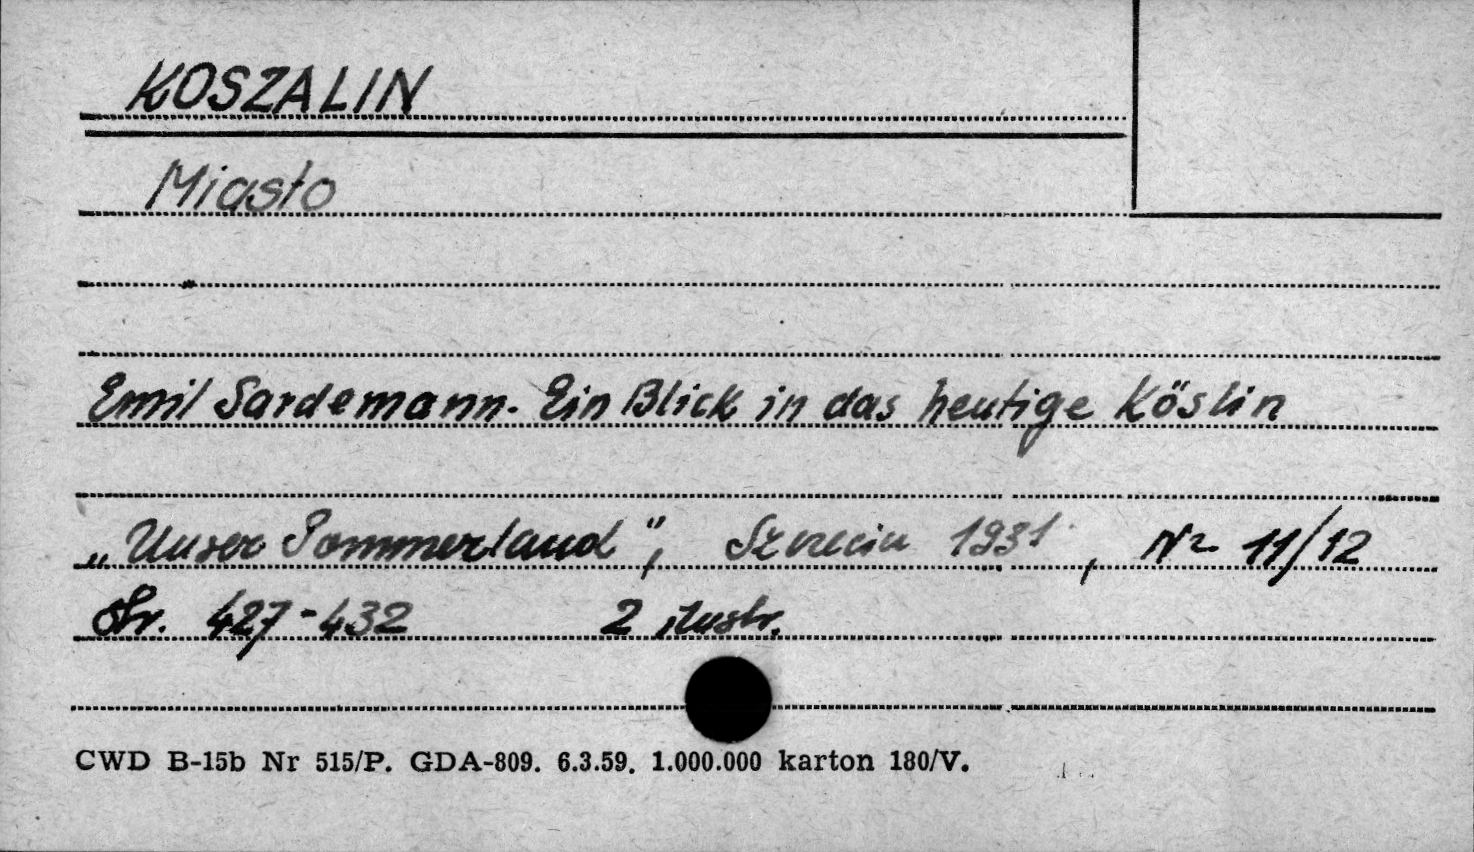 KOSZALIN
Miasto
Emil Sardemann. Ein Blick in das heutige Köslin
„Unser Pommerland", Szczecin 1931, Nr 11/12
Str. 427-432 2 ilustr.
CWD B-15b Nr 515/P. GDA-809. 6.3.59. 1.000.000 karton 180/V.